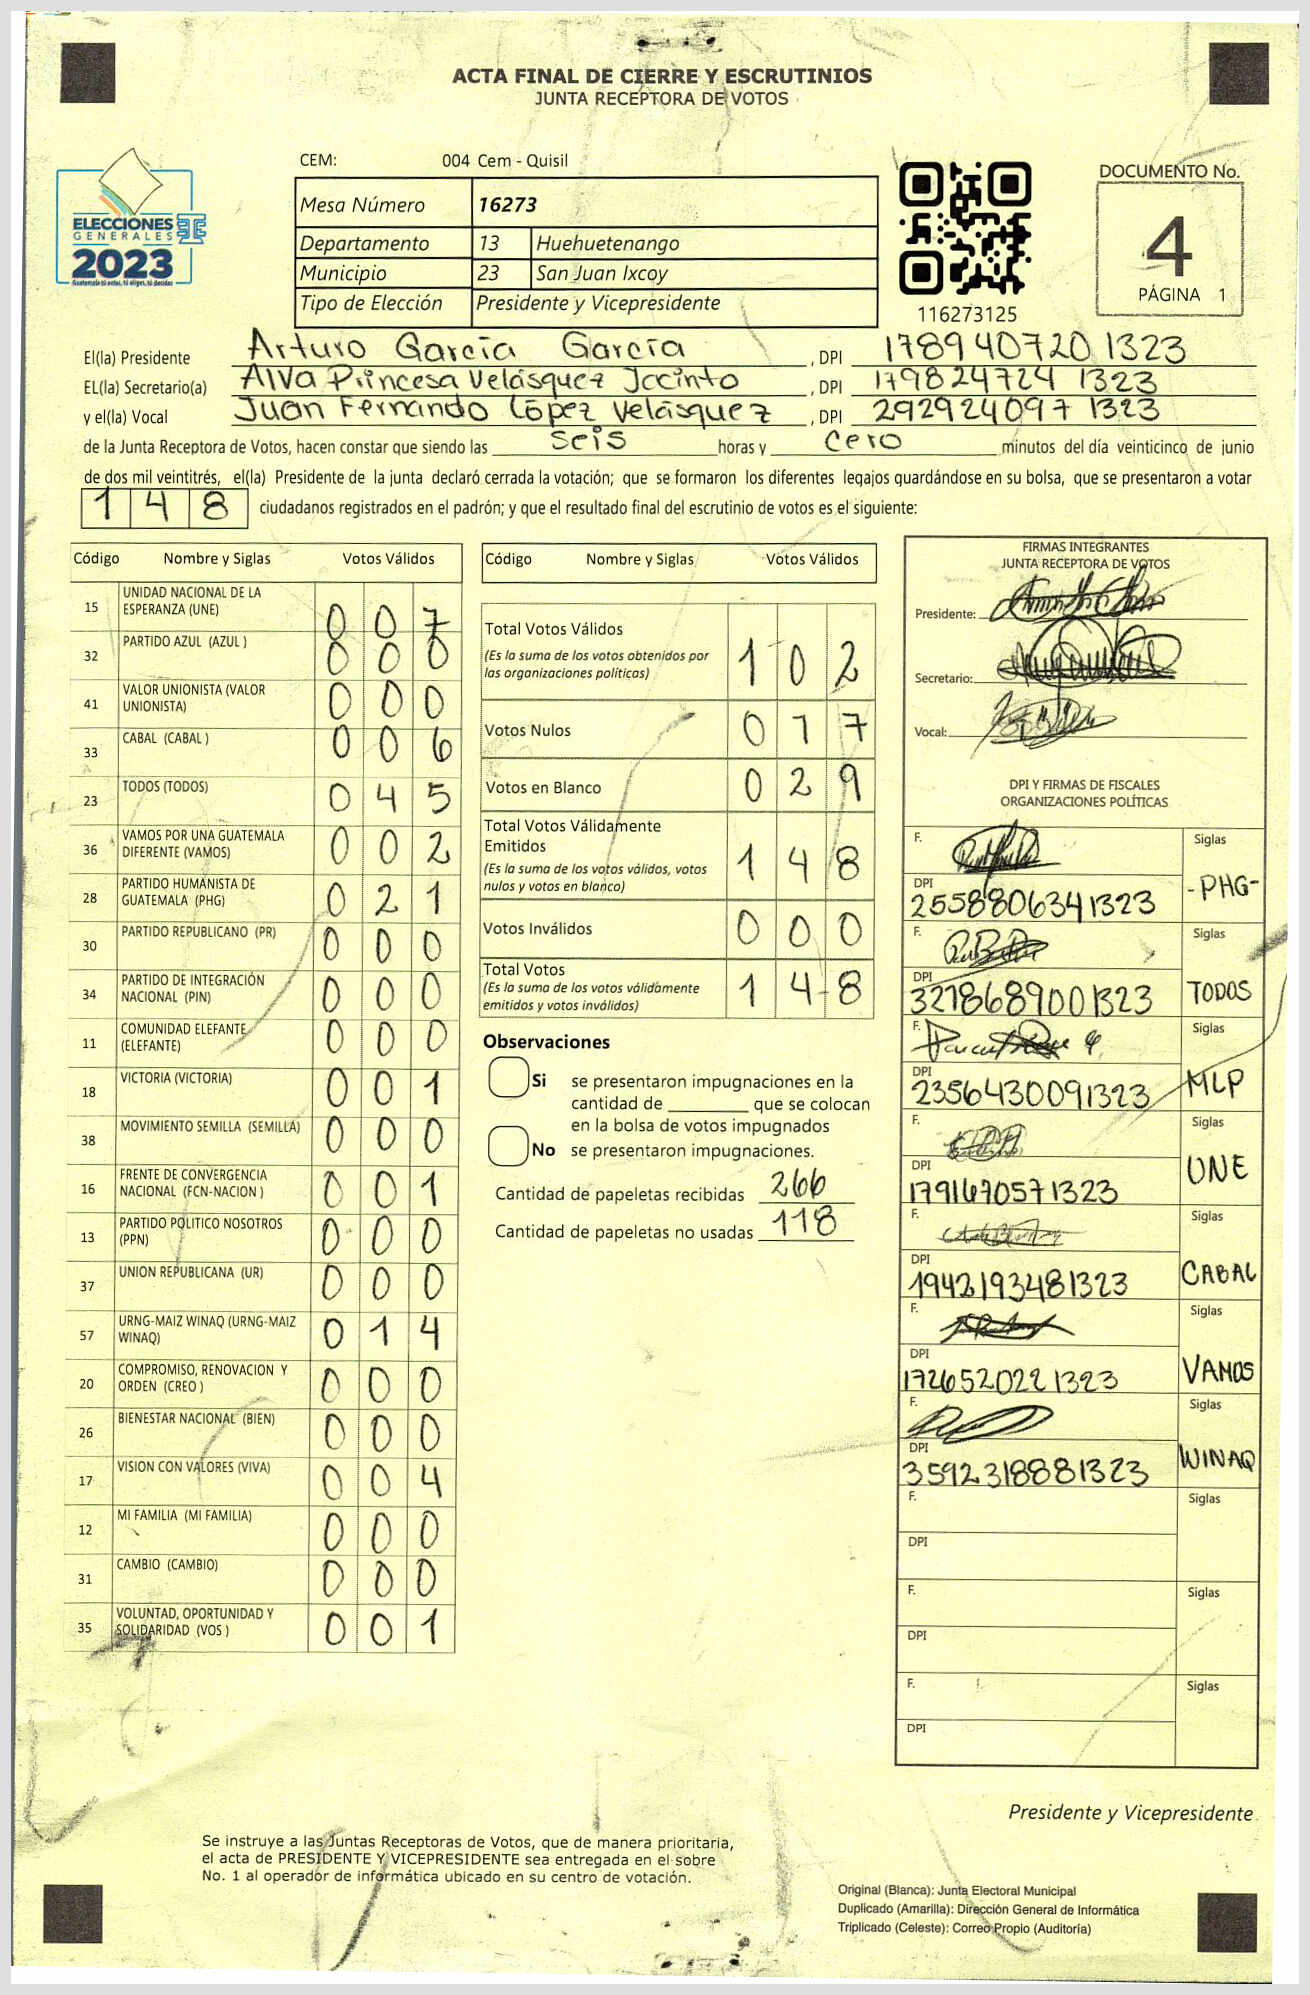 ACTA FINAL DE CIERRE Y ESCRUTINIOS
JUNTA RECEPTORA DE VOTOS
ELECCIONES
GENERALES
2023
Guatemala tú votas, tú eliges, tú decides
CEM: 004 Cem - Quisil
Mesa Número 16273
Departamento 13 Huehuetenango
Municipio 23 San Juan Ixcoy
Tipo de Elección Presidente y Vicepresidente
116273125
DOCUMENTO No.
4
PÁGINA 1
El(la) Presidente Arturo García García , DPI 178940720 1323
EL(la) Secretario(a) Alva Princesa Velásquez Jacinto , DPI 179824724 1323
y el(la) Vocal Juan Fernando López Velásquez , DPI 292924097 1323
de la Junta Receptora de Votos, hacen constar que siendo las seis horas y cero minutos del día veinticinco de junio
de dos mil veintitrés, el(la) Presidente de la junta declaró cerrada la votación; que se formaron los diferentes legajos guardándose en su bolsa, que se presentaron a votar
148 ciudadanos registrados en el padrón; y que el resultado final del escrutinio de votos es el siguiente:
Código Nombre y Siglas Votos Válidos
15 UNIDAD NACIONAL DE LA ESPERANZA (UNE) 0 0 7
32 PARTIDO AZUL (AZUL ) 0 0 0
41 VALOR UNIONISTA (VALOR UNIONISTA) 0 0 0
33 CABAL (CABAL ) 0 0 6
23 TODOS (TODOS) 0 4 5
36 VAMOS POR UNA GUATEMALA DIFERENTE (VAMOS) 0 0 2
28 PARTIDO HUMANISTA DE GUATEMALA (PHG) 0 2 1
30 PARTIDO REPUBLICANO (PR) 0 0 0
34 PARTIDO DE INTEGRACIÓN NACIONAL (PIN) 0 0 0
11 COMUNIDAD ELEFANTE (ELEFANTE) 0 0 0
18 VICTORIA (VICTORIA) 0 0 1
38 MOVIMIENTO SEMILLA (SEMILLA) 0 0 0
16 FRENTE DE CONVERGENCIA NACIONAL (FCN-NACION ) 0 0 1
13 PARTIDO POLITICO NOSOTROS (PPN) 0 0 0
37 UNION REPUBLICANA (UR) 0 0 0
57 URNG-MAIZ WINAQ (URNG-MAIZ WINAQ) 0 1 4
20 COMPROMISO, RENOVACION Y ORDEN (CREO ) 0 0 0
26 BIENESTAR NACIONAL (BIEN) 0 0 0
17 VISION CON VALORES (VIVA) 0 0 4
12 MI FAMILIA (MI FAMILIA) 0 0 0
31 CAMBIO (CAMBIO) 0 0 0
35 VOLUNTAD, OPORTUNIDAD Y SOLIDARIDAD (VOS ) 0 0 1
Código Nombre y Siglas Votos Válidos
Total Votos Válidos 1 0 2
(Es la suma de los votos obtenidos por
las organizaciones políticas)
Votos Nulos 0 1 7
Votos en Blanco 0 2 9
Total Votos Válidamente
Emitidos 1 4 8
(Es la suma de los votos válidos, votos
nulos y votos en blanco)
Votos Inválidos 0 0 0
Total Votos 1 4 8
(Es la suma de los votos válidamente
emitidos y votos inválidos)
Observaciones
Si se presentaron impugnaciones en la
cantidad de ________ que se colocan
en la bolsa de votos impugnados
No se presentaron impugnaciones.
Cantidad de papeletas recibidas 266
Cantidad de papeletas no usadas 118
FIRMAS INTEGRANTES
JUNTA RECEPTORA DE VOTOS
Presidente:
Secretario:
Vocal:
DPI Y FIRMAS DE FISCALES
ORGANIZACIONES POLÍTICAS
F. Siglas
DPI 2558806341323 -PHG-
F. Siglas
DPI 3278689001323 TODOS
F. Siglas
DPI 2356430091323 MLP
F. Siglas
DPI 1791670571323 UNE
F. Siglas
DPI 1942193481323 CABAL
F. Siglas
DPI 1726520221323 VAMOS
F. Siglas
DPI 3592318881323 WINAQ
F. Siglas
DPI
F. Siglas
DPI
F. Siglas
DPI
Presidente y Vicepresidente
Se instruye a las Juntas Receptoras de Votos, que de manera prioritaria,
el acta de PRESIDENTE Y VICEPRESIDENTE sea entregada en el sobre
No. 1 al operador de informática ubicado en su centro de votación.
Original (Blanca): Junta Electoral Municipal
Duplicado (Amarilla): Dirección General de Informática
Triplicado (Celeste): Correo Propio (Auditoría)